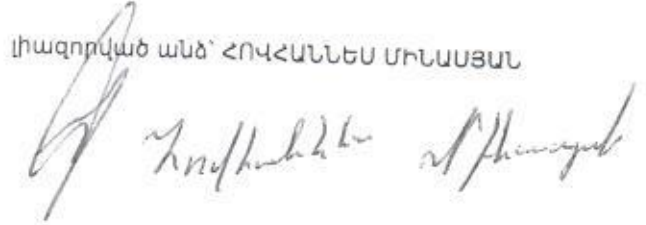 լիազորված անձ՝ ՀՈՎՀԱՆՆԵՍ ՄԻՆԱՍՅԱՆ
Հովհաննես Մինասյան